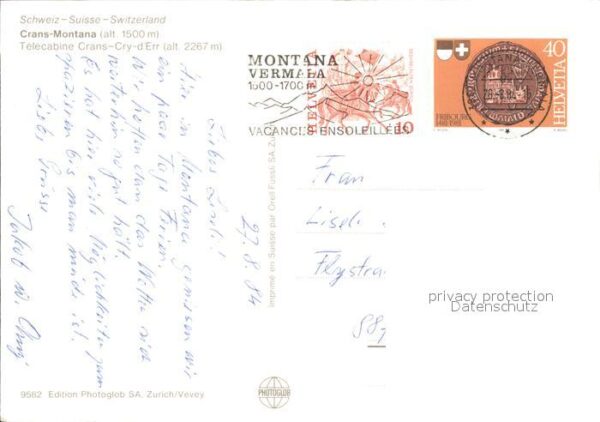 Schweiz - Suisse - Switzerland
Crans-Montana (alt. 1500 m)
Télécabine Crans-Cry-d'Err (alt. 2267 m)
27. 8. 84
Liebes Liseli!
Hier in Montana geniessen wir
ein paar Tage Ferien.
Wir hoffen dann das Wetter sich
weiterhin so gut hält.
Es hat hier viele Möglichkeiten zum
spazieren bis man müde ist.
Liebe Grüsse
Jakob
9562 Edition Photoglob SA, Zurich/Vevey
Imprimé en Suisse par Orell Füssli SA Zu
PHOTOGLOB
MONTANA
VERMALA
1500-1700
VACANCES ENSOLEILLÉES
HELVETIA
10
FRIBOURG
1481-1981
40
HELVETIA
Frau
Flystra
privacy protection
Datenschutz